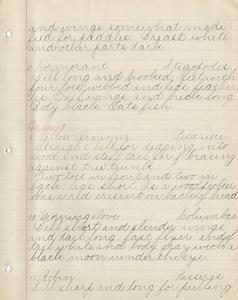 and wings somewhat modi-
fied for paddles. Breast white
and other parts dark.
Cormorant Steganopodes.
Bill long and hooked, feet with
four toes webbed and legs feather
less. Tail wings and neck long
Body black. Eats fish.
Yellowhammer Picariae
Straight bill for digging into
wood and stiff tail for bracing
against tree trunk
Two toes in front and two in
back legs short. Is a woodpecker
has a red cresent on back of head
10. Morning Dove Columbae
Bill short and slender, wings
and tail long; fast flyer. end of
tail white and body gray with a
black moon under the eye.
11. Robin Passeres
Bill sharp and long for pulling